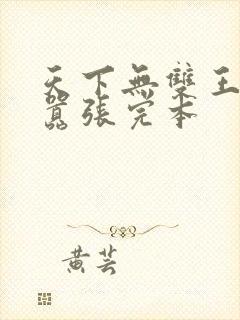 天下無雙王
囂張完本
黄芸